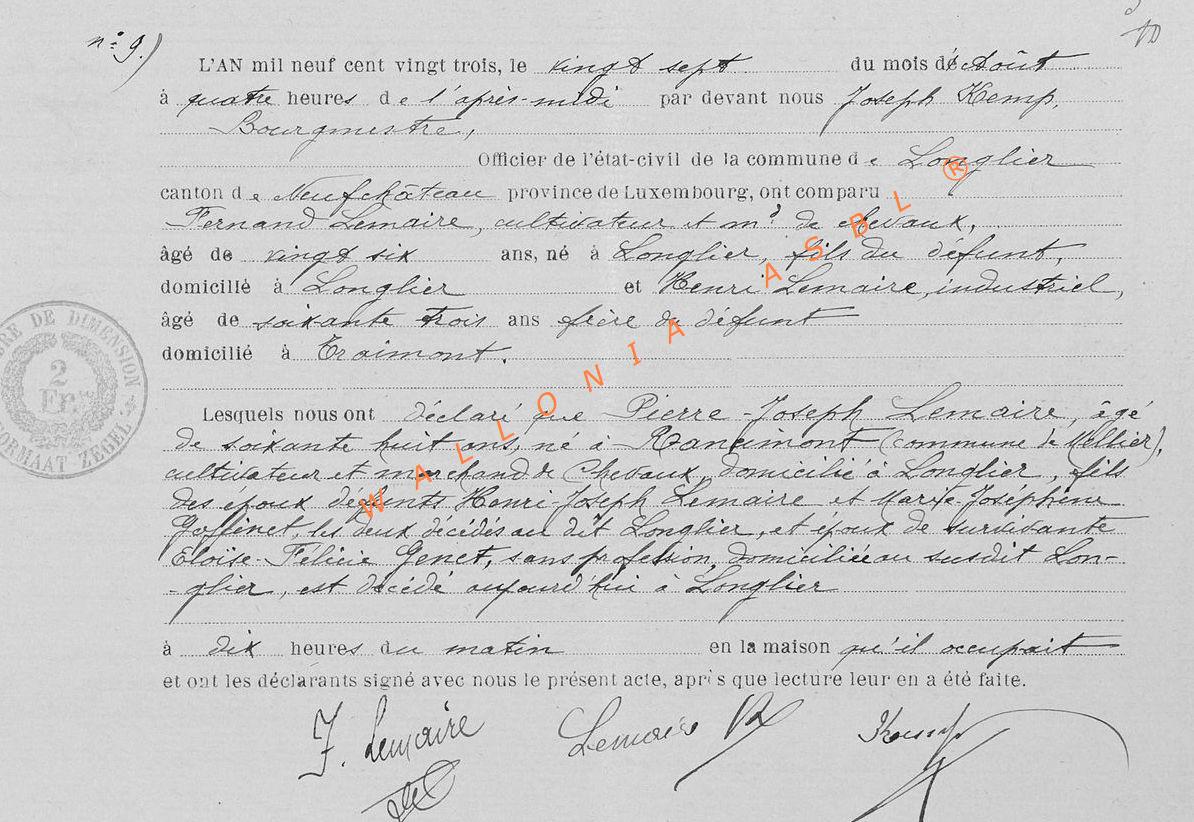 n° 9.)
10
L'AN mil neuf cent vingt trois, le vingt sept du mois d'Août
à quatre heures de l'après-midi par devant nous Joseph Kemp,
Bourgmestre,
Officier de l'état-civil de la commune de Longlier
canton de Neufchâteau province de Luxembourg, ont comparu
Fernand Lemaire, cultivateur et md de chevaux,
âgé de vingt six ans, né à Longlier, fils du défunt,
domicilié à Longlier et Henri Lemaire, industriel,
âgé de soixante trois ans frère du défunt
domicilié à Traimont.
Lesquels nous ont déclaré que Pierre-Joseph Lemaire, âgé
de soixante huit ans, né à Rancimont (commune de Mellier),
cultivateur et marchand de chevaux, domicilié à Longlier, fils
des époux défunts Henri-Joseph Lemaire et Marie-Joséphine
Goffinet, les deux décédés au dit Longlier, et époux de survivante
Eloïse-Félicie Genet, sans profession, domiciliée au susdit Lon-
-glier, est décédé aujourd'hui à Longlier
à dix heures du matin en la maison qu'il occupait
et ont les déclarants signé avec nous le présent acte, après que lecture leur en a été faite.
F. Lemaire Lemaire Kemp
WALLONIA ASBL ®
DE DIMENSION
2
Fr.
FORMAAT ZEGEL